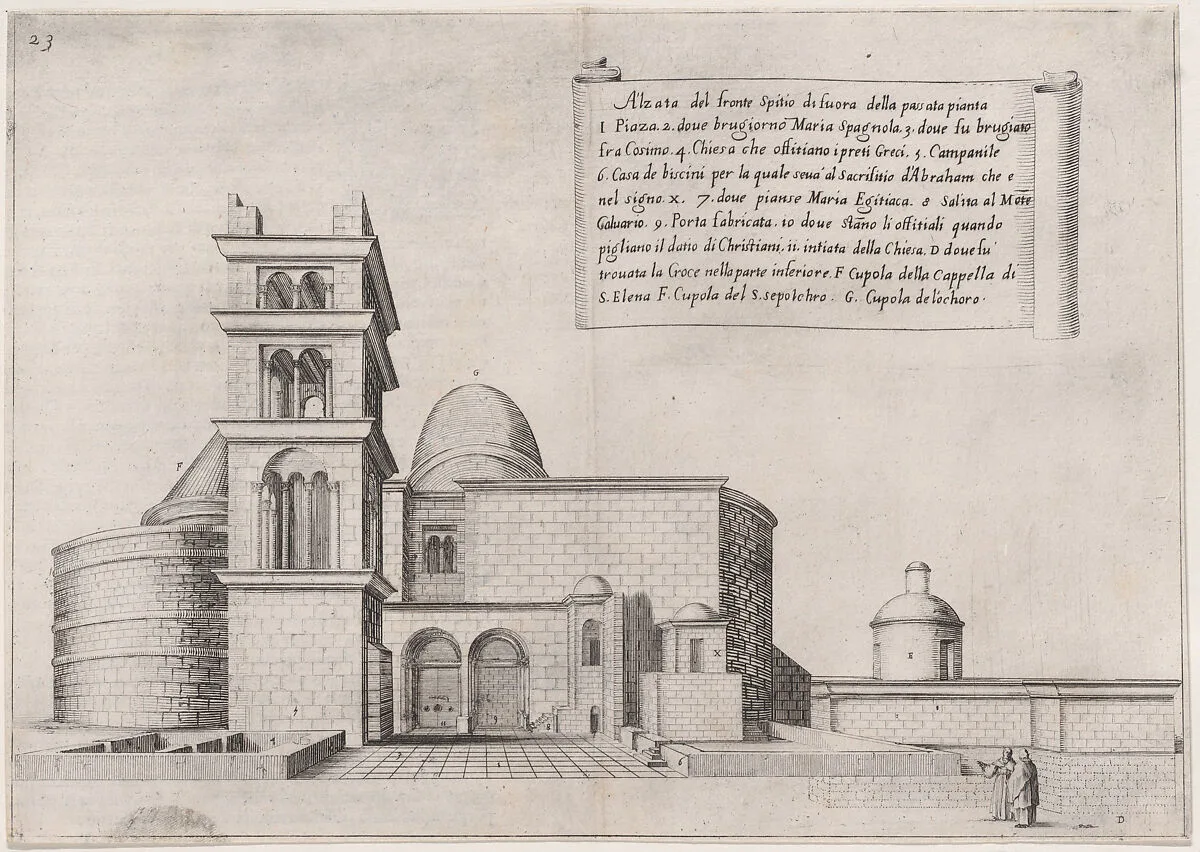 23
Alzata del fronte Spitio di fuora della passata pianta
I Piaza. 2. doue brugiorno Maria Spagnola. 3. doue fu brugiato
fra Cosimo. 4. Chiesa che offitiano i preti Greci. 5. Campanile
6. Casa de biscini per la quale seua al Sacrifitio d'Abraham che e
nel signo. x. 7. doue pianse Maria Egitiaca. 8 Salita al Mōte
Caluario. 9. Porta fabricata. 10 doue stāno li offitiali quando
pigliano il datio di Christiani. ii. intiata della Chiesa. D doue fu
trouata la Croce nella parte inferiore. F Cupola della Cappella di
S. Elena F. Cupola del S. sepolchro. G. Cupola delochoro.
G
F
X
E
5
11
9
8
4
3
1
6
D